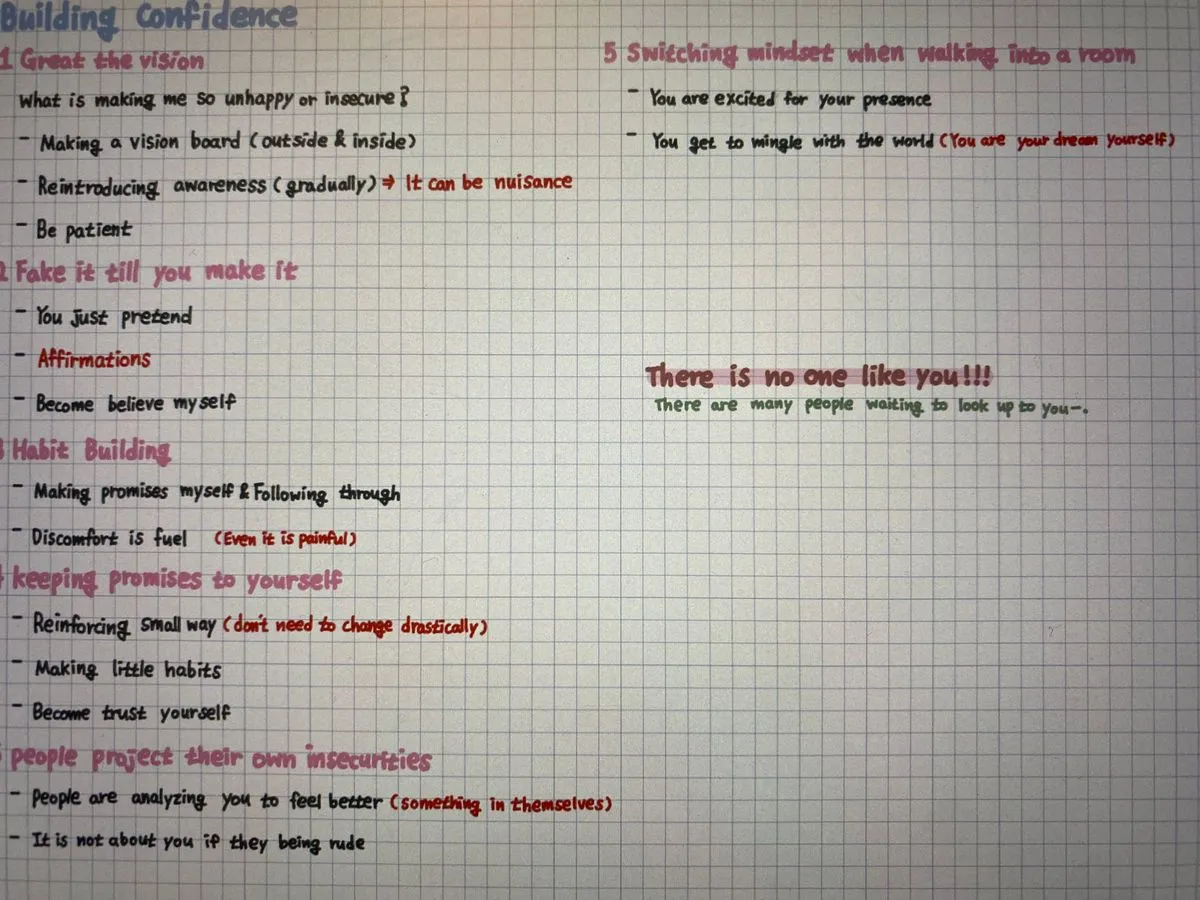 Building Confidence
1 Great the vision
What is making me so unhappy or insecure?
- Making a vision board (outside & inside)
- Reintroducing awareness (gradually) ⇒ It can be nuisance
- Be patient
2 Fake it till you make it
- You just pretend
- Affirmations
- Become believe myself
3 Habit Building
- Making promises myself & Following through
- Discomfort is fuel (Even it is painful)
keeping promises to yourself
- Reinforcing small way (don't need to change drastically)
- Making little habits
- Become trust yourself
people project their own insecurities
- People are analyzing you to feel better (something in themselves)
- It is not about you if they being rude
5 Switching mindset when walking into a room
- You are excited for your presence
- You get to mingle with the world (You are your dream yourself)
There is no one like you!!!
There are many people waiting to look up to you-.